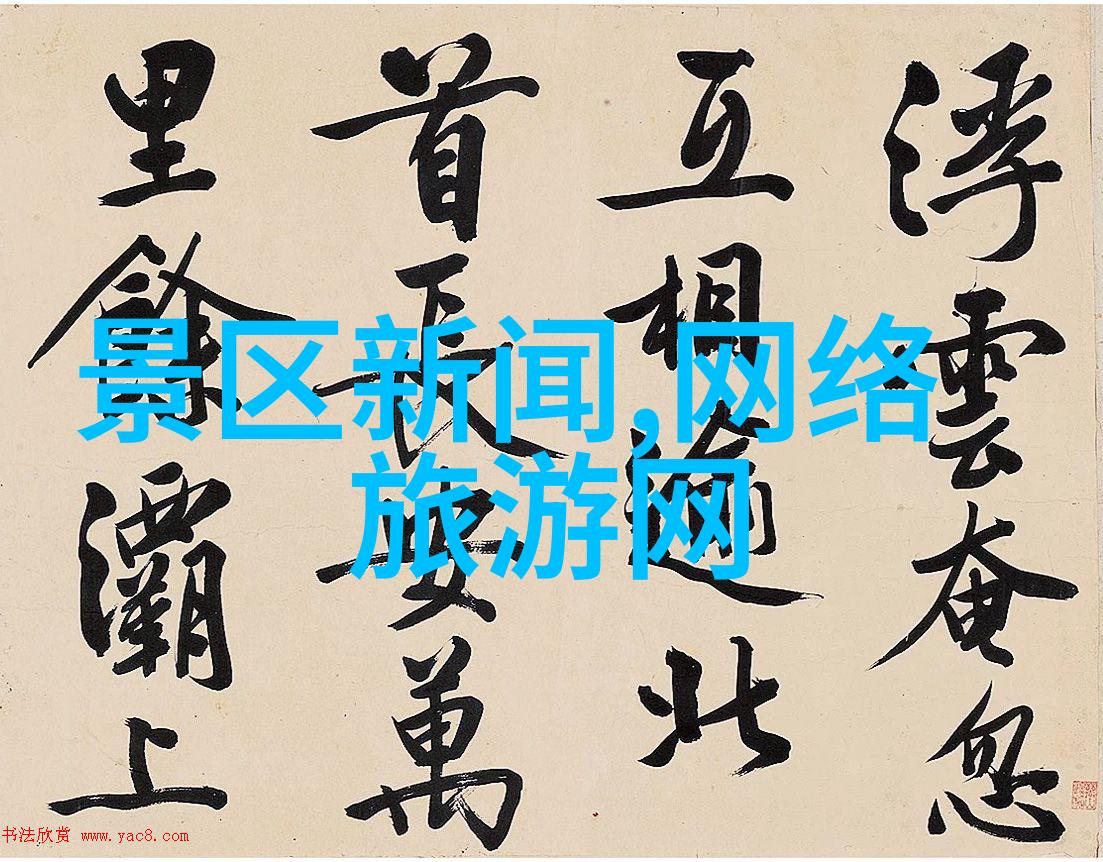 浮雲奄忽
互相逾北
首長安萬
里餘灞上
景区新闻,网络
旅游网
书法欣赏 www.yac8.com